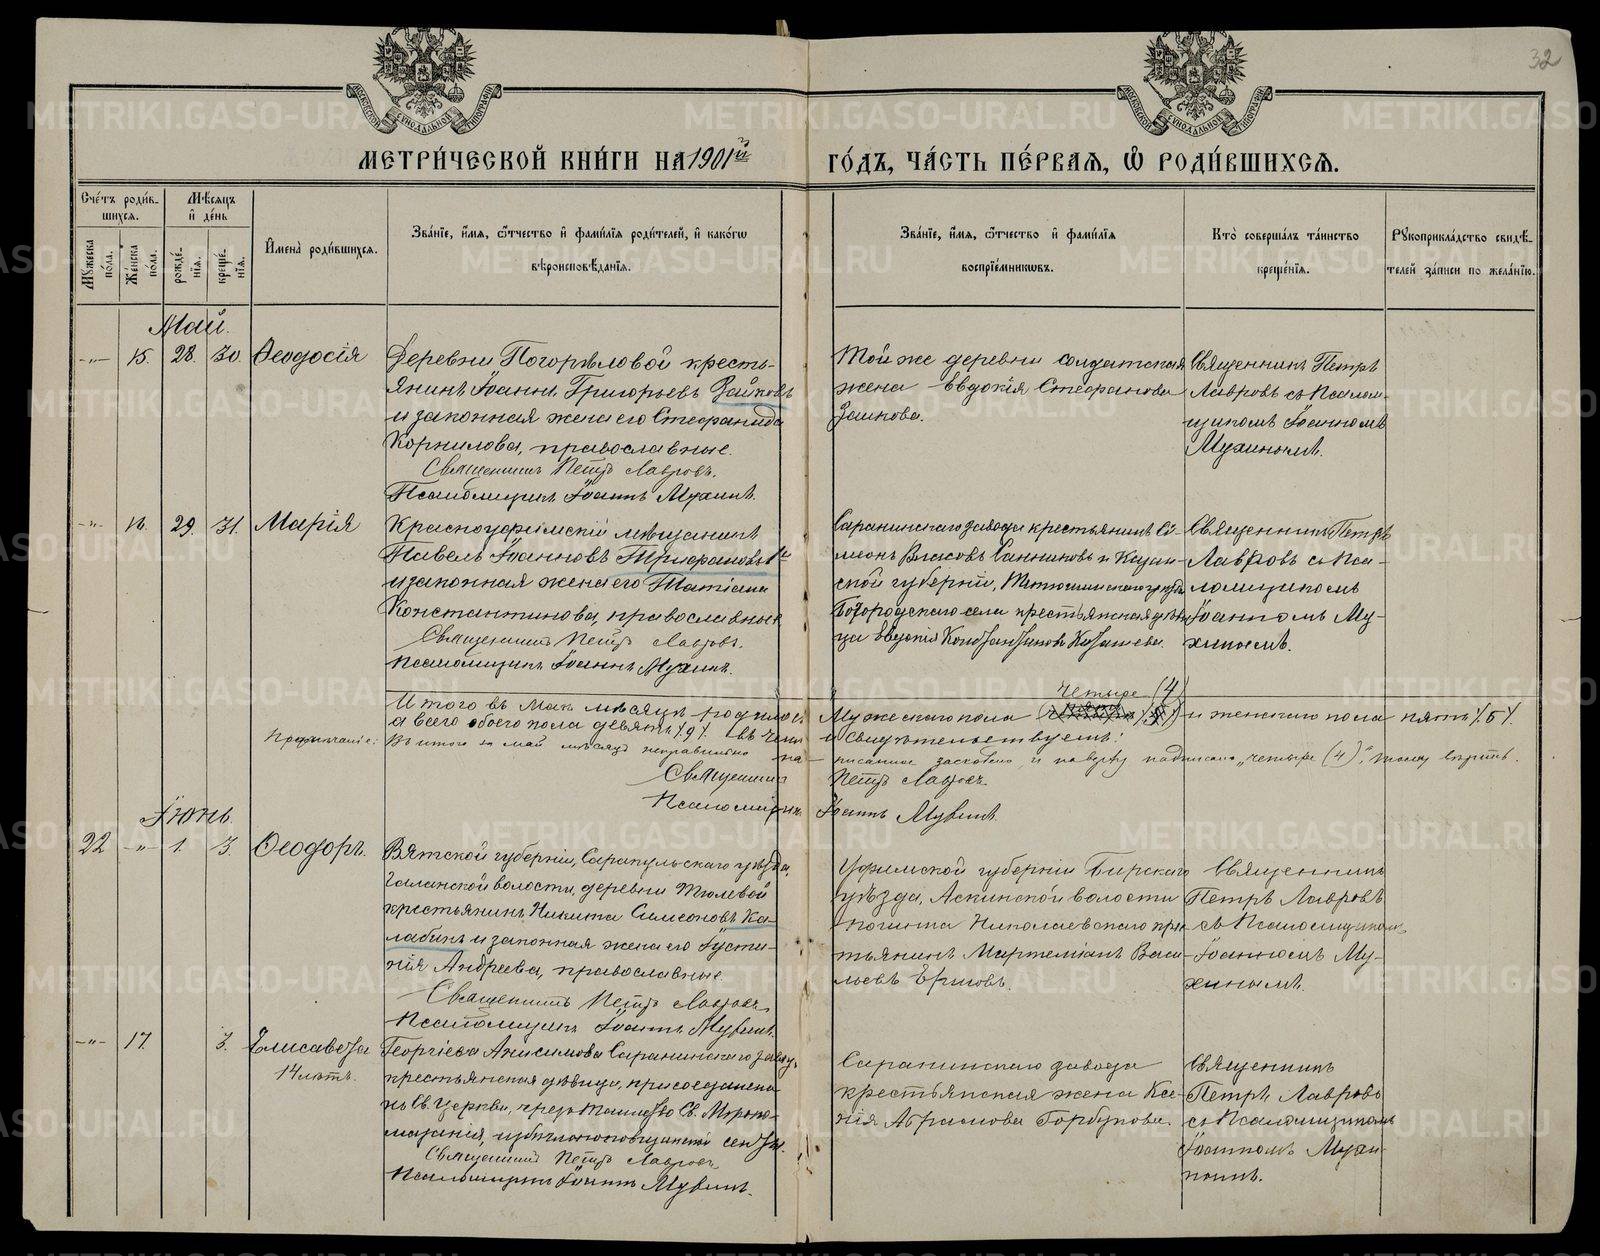 32
МОСКОВСКОЙ СѴНОДАЛЬНОЙ ТИПОГРАФІИ
МОСКОВСКОЙ СѴНОДАЛЬНОЙ ТИПОГРАФІИ
МЕТРИ́ЧЕСКОЙ КНИ́ГИ НА 1901й ГО́ДЪ, ЧА́СТЬ ПЕ́РВАЯ, Ѡ РОДИ́ВШИХСЯ.
Сче́тъ роди́в-
шихся.
Мѣ́сяцъ
и де́нь
Му́жеска по́ла.
Же́нска по́ла.
рожде́-
нія.
креще́-
нія.
Имена̀ роди́вшихся.
Зва́ніе, и́мя, ѻ́тчество и фами́лія роди́телей, и како́гѡ
вѣроисповѣ́данія.
Зва́ніе, и́мя, ѻ́тчество и фами́лія
воспріе́мниковъ.
Кто̀ соверша́лъ та́инство
креще́нія.
Рукоприкла́дство свидѣ́-
телей за́писи по жела́нію.
Май.
-"- 15. 28. 30. Ѳеодосія
Деревни Погорѣловой кресть-
янинъ Іоаннъ Григорьевъ Заиковъ
и законная жена его Стефанида
Корнилова, православные.
Священникъ Петръ Лавровъ.
Псаломщикъ Іоаннъ Мухинъ.
Той же деревни солдатская
жена Евдокія Стефанова
Заикова.
Священникъ Петръ
Лавровъ съ Псалом-
щикомъ Іоанномъ
Мухинымъ.
-"- 16. 29. 31. Марія
Красноуфимскій мѣщанинъ
Павелъ Іоанновъ Трифановъ
и законная жена его Татіана
Константинова, православные
Священникъ Петръ Лавровъ.
Псаломщикъ Іоаннъ Мухинъ.
Саранинскаго завода крестьянинъ Си-
меонъ Власовъ Санниковъ и Казан-
ской губерніи,
Богородскаго села крестьянская дѣви-
ца Евдокія
Священникъ Петръ
Лавровъ съ Пса-
ломщикомъ
Іоанномъ Му-
хинымъ.
Итого въ Маѣ мѣсяцѣ родилось Мужескаго пола четыре (4) и женскаго пола пять (5).
а всего обоего пола девять (9). въ чемъ и свидѣтельствуемъ:
Примѣчаніе: Въ итогѣ за май мѣсяцъ неправильно на-
писанное зачеркнуто, и наверху надписано "четыре (4)", тому вѣрить.
Священникъ Петръ Лавровъ.
Псаломщикъ Іоаннъ Мухинъ.
Іюнь.
22 -"- 1. 3. Ѳеодоръ.
Вятской губерніи, Сарапульскаго уѣзда,
Галановской волости, деревни Тюлевой
крестьянинъ Никита Симеоновъ Ка-
лабинъ и законная жена его Іусти-
нія Андреева, православные.
Священникъ Петръ Лавровъ.
Псаломщикъ Іоаннъ Мухинъ.
Уфимской губерніи Бирскаго
уѣзда, Аскинской волости
починка Николаевскаго крес-
тьянинъ Мартеміанъ Васи-
льевъ Ершовъ.
Священникъ
Петръ Лавровъ
съ Псаломщикомъ
Іоанномъ Му-
хинымъ.
-"- 17. 3. Елисавета
14 лѣтъ.
Георгіева Анисимова Саранинскаго завода
крестьянская дѣвица, присоединена
къ Св. Церкви, чрезъ таинство Св. Мѵропо-
мазанія, секты.
Священникъ Петръ Лавровъ.
Псаломщикъ Іоаннъ Мухинъ.
Саранинскаго завода
крестьянская жена Ксе-
нія Абрамова Горбунова.
Священникъ
Петръ Лавровъ
съ Псаломщикомъ
Іоанномъ Мухи-
нымъ.
METRIKI.GASO-URAL.RU